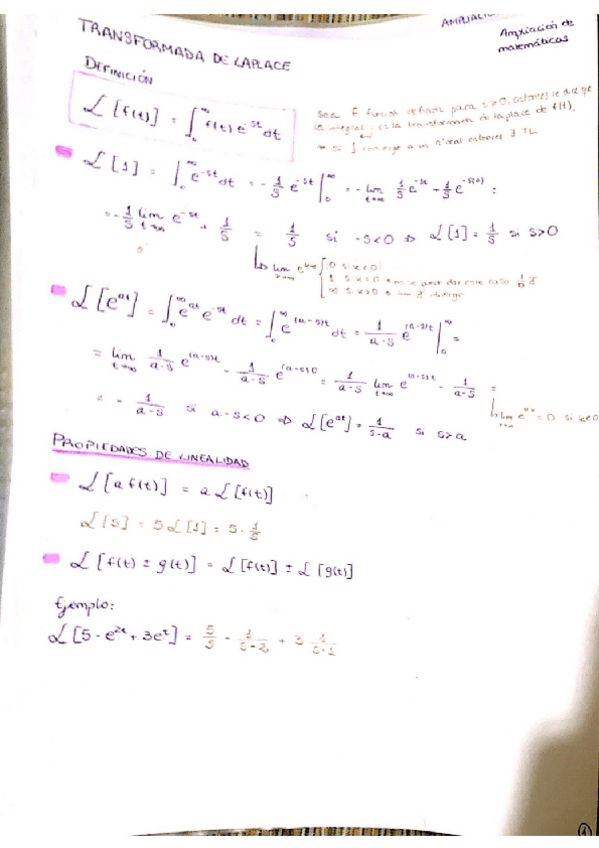 AMPLIACI
Ampliación de
matemáticas
TRANSFORMADA DE LAPLACE
DEFINICIÓN
ℒ[f(t)] = ∫₀^∞ f(t) e^{-st} dt
sea f función definida para t>0, entonces se dice que
la integral es la transformada de laplace de f(t),
si ∫ converge a un nº real entonces ∃ TL
ℒ[1] = ∫₀^∞ e^{-st} dt = -1/s e^{-st} |₀^∞ = -lim_{t→∞} 1/s e^{-st} - 1/s e^{-s(0)} :
= -1/s lim_{t→∞} e^{-st} + 1/s = 1/s si -s<0 ⇒ ℒ[1] = 1/s si s>0
0 si k<0
ℒ[e^{at}] = ∫₀^∞ e^{at} e^{-st} dt = ∫₀^∞ e^{(a-s)t} dt = 1/(a-s) e^{(a-s)t} |₀^∞ =
= lim_{t→∞} 1/(a-s) e^{(a-s)t} - 1/(a-s) e^{(a-s)0} = 1/(a-s) lim_{t→∞} e^{(a-s)t} - 1/(a-s) =
= 0 si k<0
= - 1/(a-s) si a-s<0 ⇒ ℒ[e^{at}] = 1/(s-a) si s>a
PROPIEDADES DE LINEALIDAD
ℒ[a f(t)] = a ℒ[f(t)]
ℒ[5] = 5 ℒ[1] = 5 · 1/s
ℒ[f(t) ± g(t)] = ℒ[f(t)] ± ℒ[g(t)]
Ejemplo:
ℒ[5 - e^{2t} + 3e^t] = 5/s - 1/(s-2) + 3 1/(s-1)
1